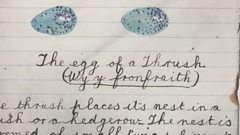 The egg of a Thrush
(Wy y fronfraith)
e thrush places it's nest in a
ush or a hedgerow. The nest is
ormed of small twigs